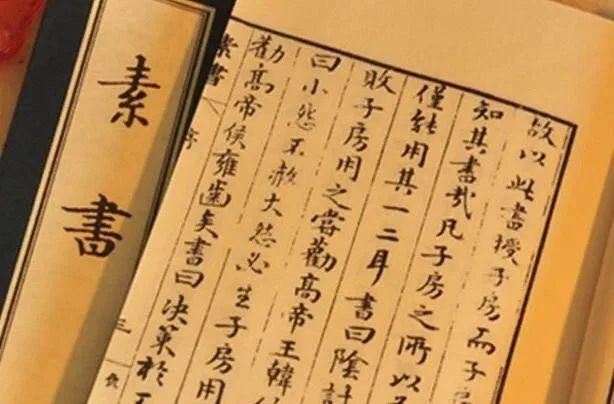 故以此書授子房而子
知其書哉凡子房之所以
僅能用其一二耳書曰陰計
敗子房用之嘗勸高帝王韓
曰小怨不赦大怨必生子房用
勸高帝侯雍齒矣書曰決策於
素書 序 三
素書